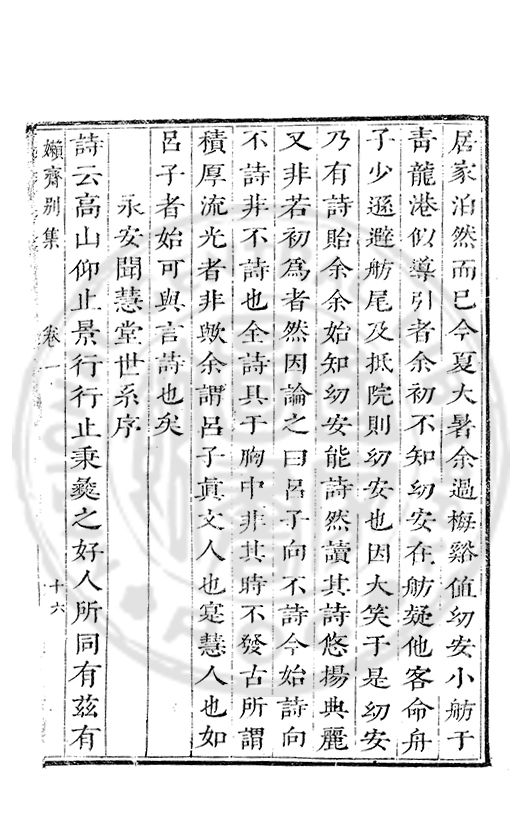 居家泊然而已今夏大暑余過梅谿值幼安小舫于
靑龍港似導引者余初不知幼安在舫疑他客命舟
子少遜避舫尾及抵院則幼安也因大笑于是幼安
乃有詩貽余余始知幼安能詩然讀其詩悠揚典麗
又非若初爲者然因論之曰呂子向不詩今始詩向
不詩非不詩也全詩具于胸中非其時不發古所謂
積厚流光者非歟余謂呂子眞文人也寔慧人也如
呂子者始可與言詩也矣
永安聞慧堂世系序
詩云高山仰止景行行止秉彜之好人所同有茲有
嬾齋别集
卷一
十六